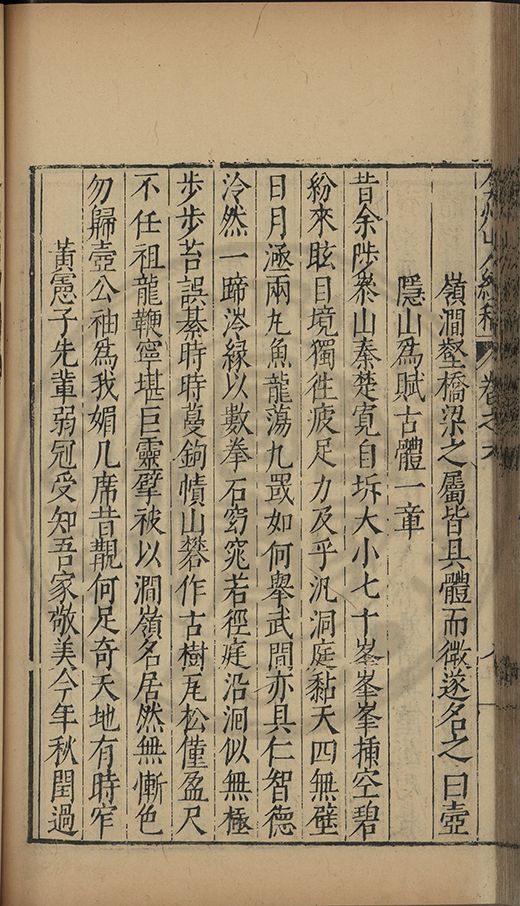 山人續稿 卷之六
嶺澗壑橋梁之屬皆具體而微遂名之曰壺
隱山爲賦古體一章
昔余陟衆山秦楚寬自坼大小七十峯峯峯揷空碧
紛來眩目境獨徃疲足力及乎汎洞庭黏天四無壁
日月涵兩丸魚龍蕩九罭如何擧武間亦具仁智德
泠然一蹄涔緑以數拳石窈窕若徑庭沿洄似無極
步步苔誤綦時時蔓鉤幘山礬作古樹瓦松僅盈尺
不任祖龍鞭寧堪巨靈擘被以澗嶺名居然無慚色
勿歸壺公袖爲我媚几席昔覩何足奇天地有時窄
黃憲子先輩弱冠受知吾家敬美今年秋閏過